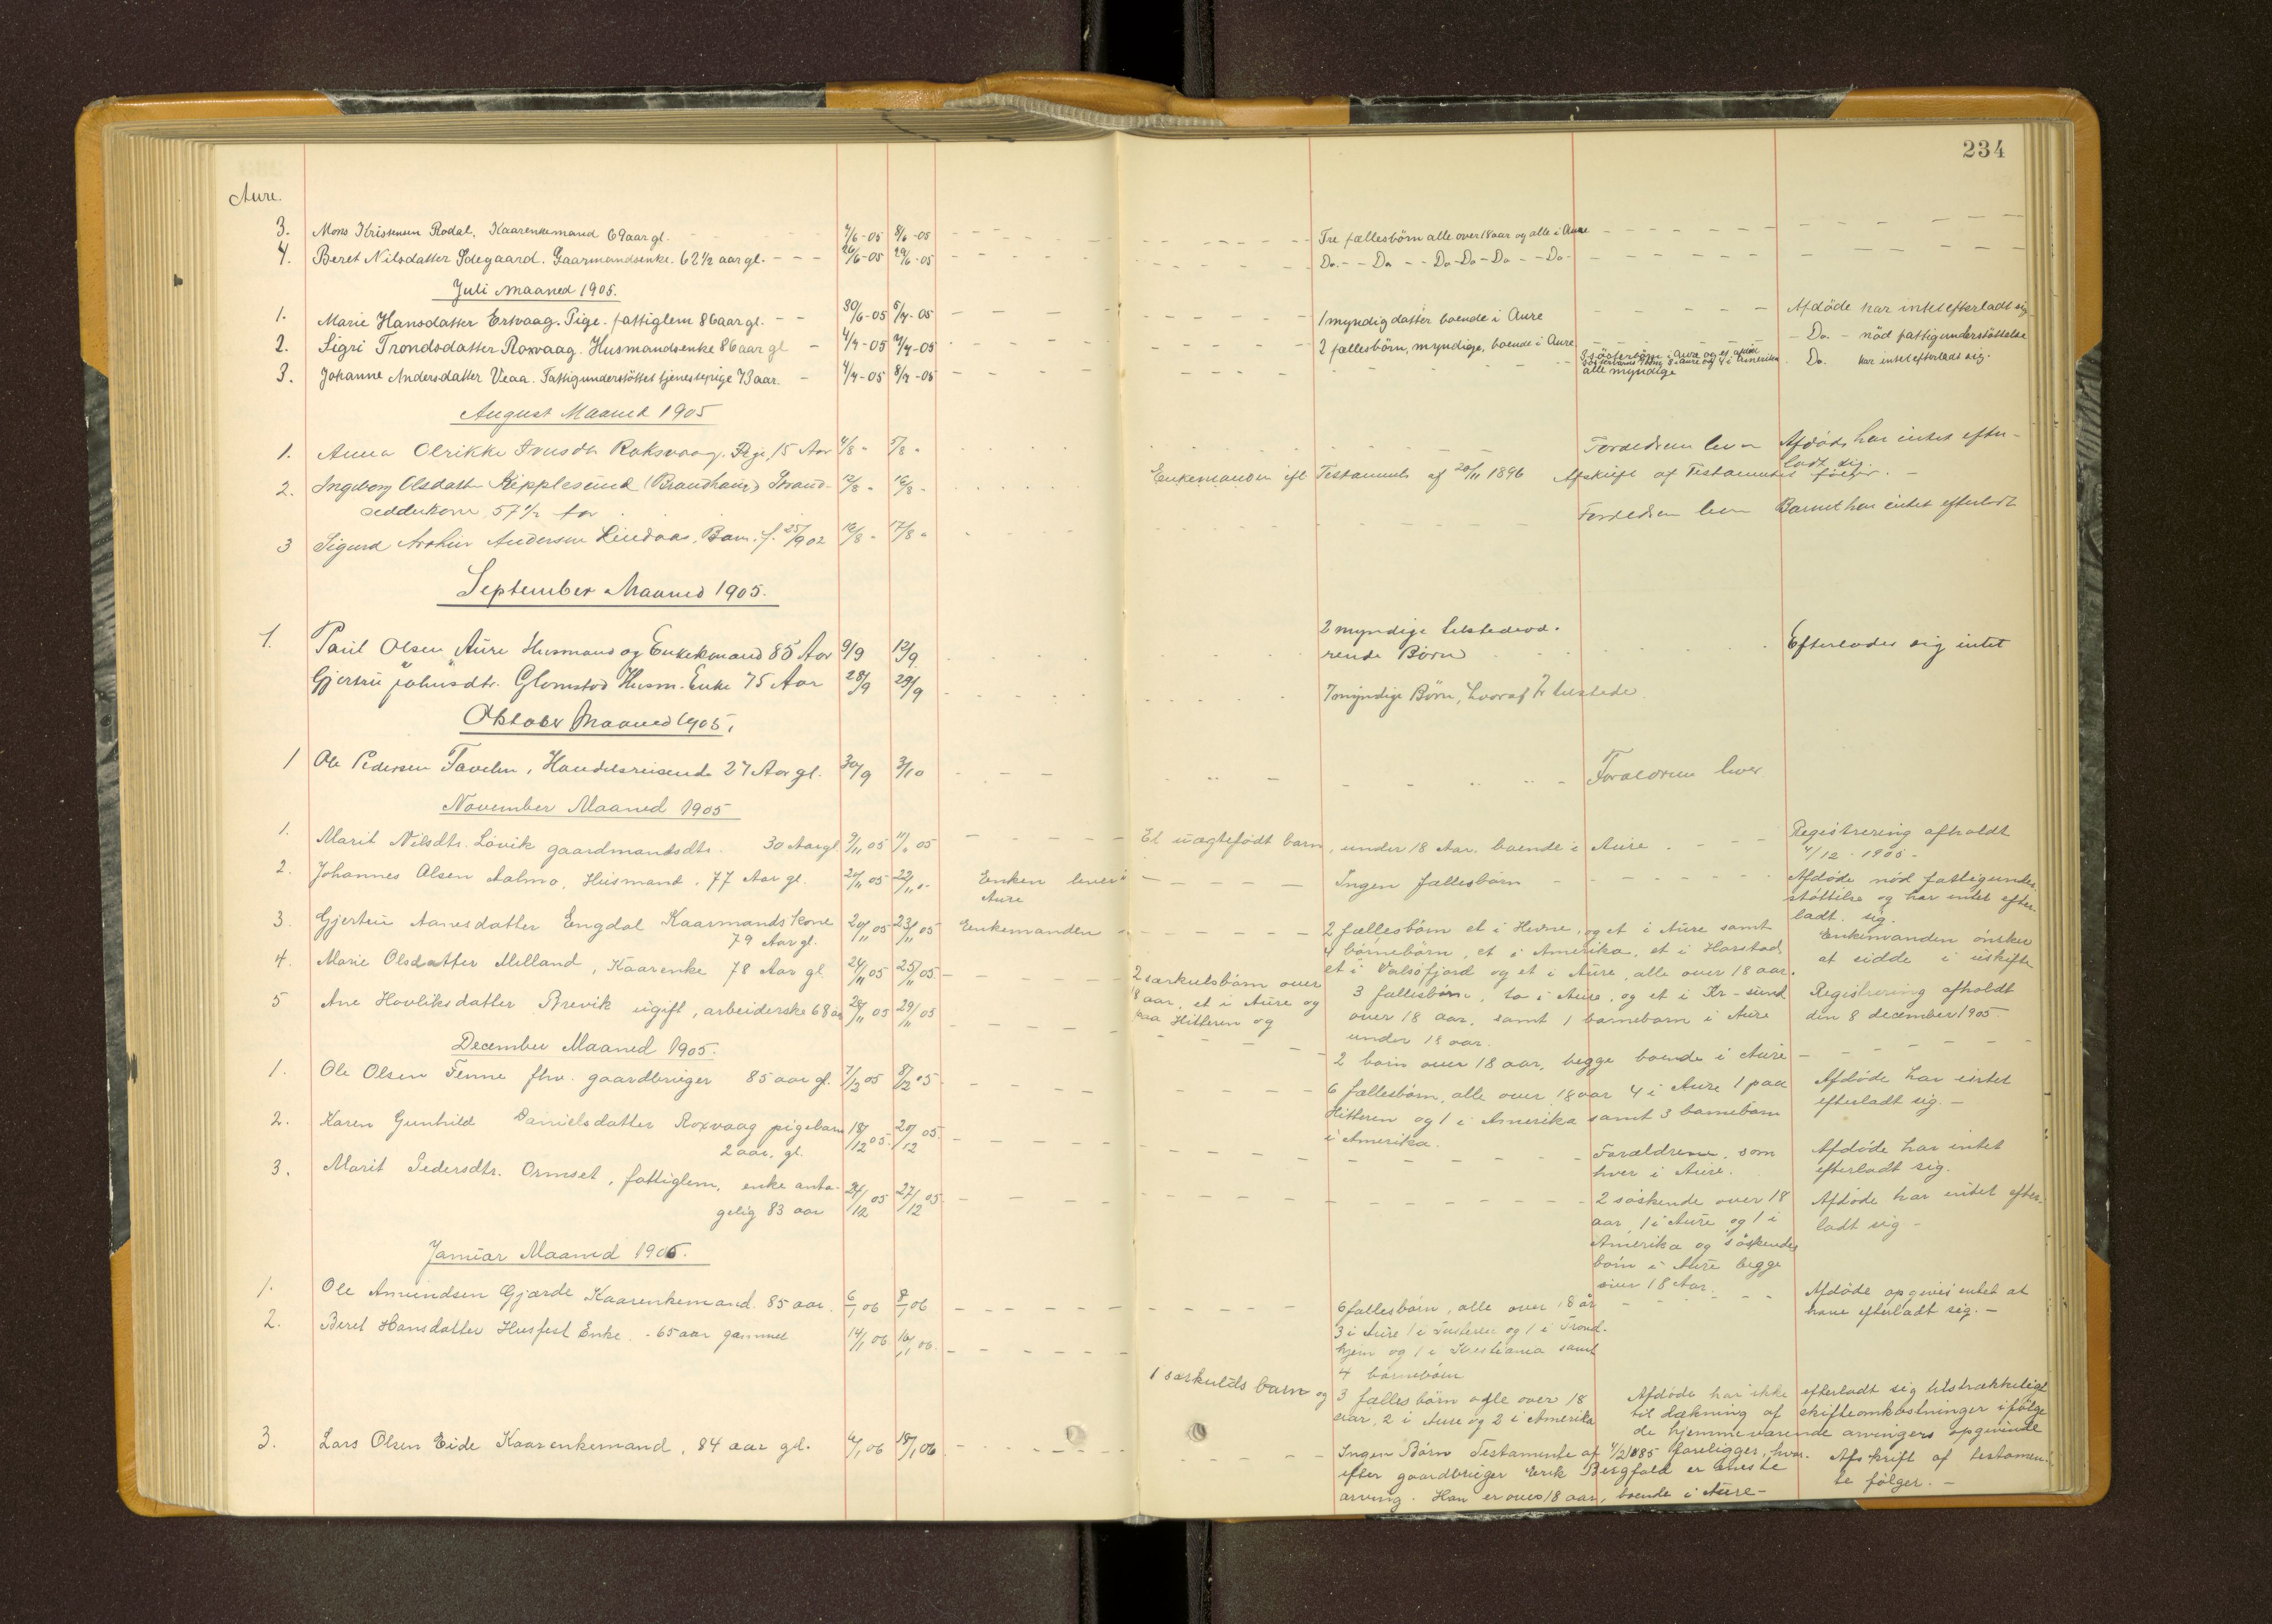 234
Aure.
3. Mons Kristensen Rodal. Kaarenkemand 69 aar gl. 4/6-05 8/6-05 Tre fællesbörn alle over 18 aar og alle i Aure
4. Beret Nilsdatter Ödegaard. Gaarmandsenke. 62 1/2 aar gl. 26/6-05 29/6-05 Do. - - Do - - Do - Do - Do - - Do -
Juli Maaned 1905.
1. Marie Hansdatter Ertvaag. Pige. fattiglem 86 aar gl. 30/6-05 5/7-05 1 myndig datter boende i Aure Afdöde har intet efterladt sig
2. Sigri Trondsdatter Roxvaag. Husmandsenke 86 aar gl 4/7-05 7/7-05 2 fællesbörn, myndige, boende i Aure - Do. - nöd fattigunderstöttelse
3. Johanne Andersdatter Veaa. Fattigunderstöttet tjenestepige 73 aar. 4/7-05 8/7-05 alle myndige Do. har intet efterlade sig.
August Maaned 1905
1. Anna Olrikke Iversdtr Roksvaag. Pige, 15 Aar 4/8 " 5/8 " Forældrene lever Afdøde har intet efter-
ladt sig.
2. Ingeborg Olsdatter Kipplesund (Brandhaug) Strand- 12/8 " 16/8 " Enkemanden ifl Testamente af 20/11 1896 Afskrift af Testamentet følger. -
sidderkone 57 1/2 Aar
3 Sigurd Arthur Andersen Lindaas, Barn. f. 25/9 02 12/8 " 17/8 " Forældrene lever Barnet har intet efterladt
September Maaned 1905.
1. Paul Olsen Aure Husmand og Enkemand 85 Aar 9/9 12/9 2 myndige tilstedevæ-
rende Børn Efterlader sig intet
Gjertru Johnsdtr. Glomstad Husm. Enke 75 Aar 28/9 29/9 7 myndige Børn, hvoraf 2 tilstede
Oktober Maaned 1905.
1 Ole Pedersen Tavelen, Handelsreisende 27 Aar gl. 30/9 3/10 Forældrene lever
November Maaned 1905
1. Marit Nilsdtr. Lövik gaardmandsdtr. 30 Aar gl 9/11 05 11/11 05 Et uægtefödt barn, under 18 Aar. boende i Aure. Registrering afholdt
4/12 - 1905 -
2. Johannes Olsen Aalmo, Husmand. 77 Aar gl. 21/11 05 22/11 .. Enken lever i
Aure Ingen fællesbörn Afdöde nöd fattigunder-
stöttelse og har intet efter-
ladt sig.
3. Gjertru Aanesdatter Engdal Kaarmands kone 20/11 05 23/11 05 Enkemanden
79 Aar gl.
2 fællesbörn et i Hevne, og et i Aure samt
4 börnebörn, et i Amerika, et i Harstad,
et i Valsöfjord og et i Aure, alle over 18 aar.
Enkemanden önsker
at sidde i uskifte
4. Marie Olsdatter Melland, Kaarenke 78 Aar gl. 24/11 05 25/11 05
2 særkulsbörn over
18 aar, et i Aure og
paa Hitteren og
3 fællesbörn, to i Aure, og et i Kr-sund
over 18 aar, samt 1 barnebarn i Aure
under 18 aar.
Registrering afholdt
den 8 december 1905.
5 Ane Hovliksdatter Brevik ugift, arbeiderske 68 aar 26/11 05 29/11 05 2 barn over 18 aar, begge boende i Aure
December Maaned 1905.
1. Ole Olsen Fenne fhv. gaardbruger 85 aar gl. 7/12 05 8/12 05
6 fællesbörn, alle over 18 aar 4 i Aure 1 paa
Hitteren og 1 i Amerika samt 3 barnebarn
i Amerika.
Afdöde har intet
efterladt sig. -
2. Karen Gunhild Danielsdatter Roxvaag pigebarn 18/12 05. 20/12 05.
2 aar, gl.
Forældrene, som
lever i Aure.
Afdöde har intet
efterladt sig.
3. Marit Pedersdtr. Ormset, fattiglem, enke anta- 24/12 05 27/12 05.
gelig 83 aar
2 söskende over 18
aar, 1 i Aure og 1 i
Amerika og söskende
börn i Aure begge
over 18 Aar.
Afdöde har intet efter-
ladt sig -
Januar Maaned 1906.
1. Ole Amundsen Gjærde Kaarenkemand. 85 aar. 6/1 06 8/1 06
6 fællesbörn, alle over 18 år
3 i Aure 1 i Tusteren og 1 i Trond-
hjem og 1 i Kristiania samt
4 barnebörn
Afdöde opgives intet at
have efterladt sig. -
2. Beret Hansdatter Husfest Enke. - 65 aar gammel 14/1 06 16/1 06.
1 særkulds barn og 3 fælles börn alle over 18
aar, 2 i Aure og 2 i Amerika
Afdöde har ikke efterladt sig tilstrækkeligt
til dækning af skifteomkostninger ifölge
de hjemmeværende arvingers opgivende
3. Lars Olsen Eide Kaarenkemand, 84 aar gl. 6/1 06 18/1 06
Ingen Börn Testamente af 4/2 1885 foreligger, hvor-
efter gaardbruger Erik Bergfald er eneste
arving. Han er over 18 aar, boende i Aure -
Afskrift af testamen-
te fölger. -